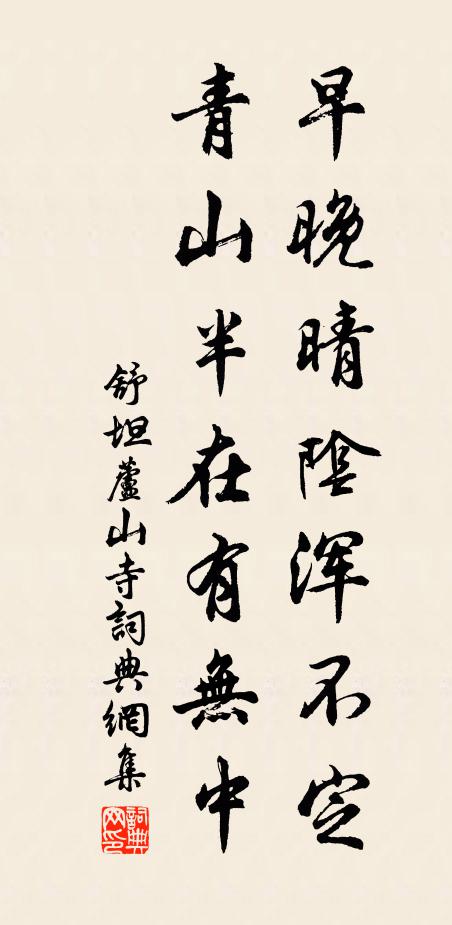 早晚晴陰浑不定
青山半在有無中
舒坦蘆山寺詞典網集
詞典网印